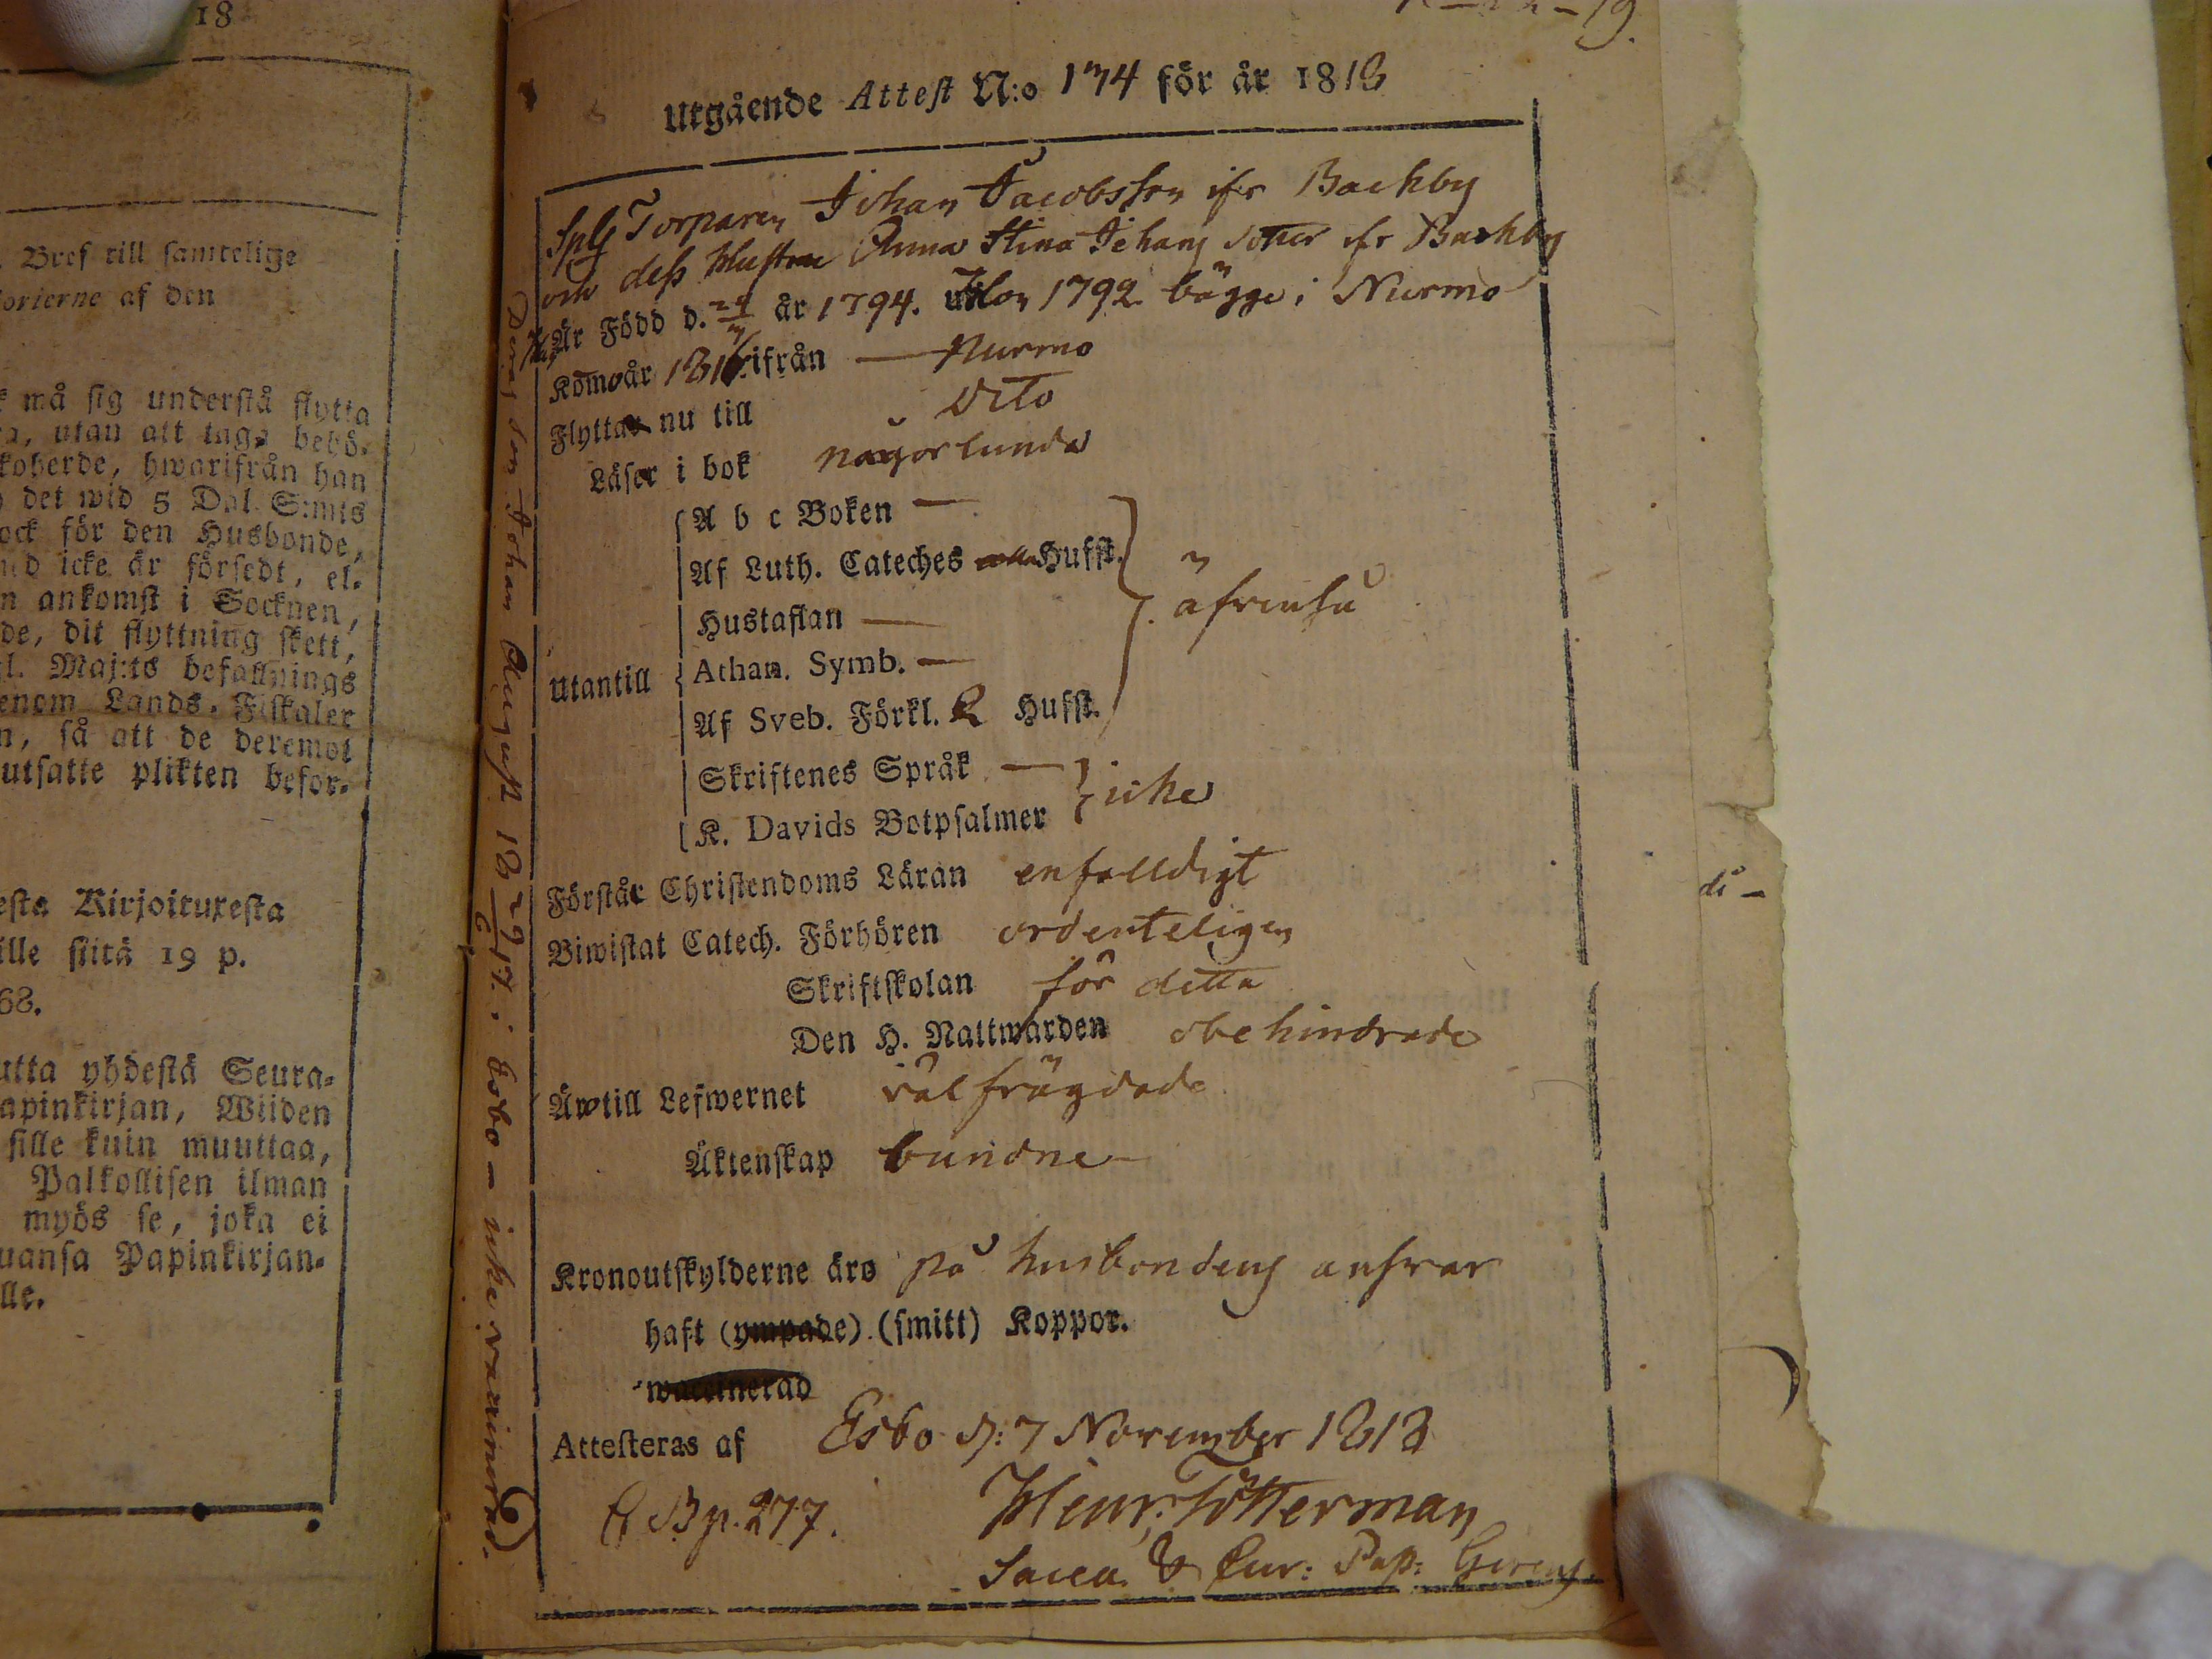 18
Bref till samtelige
orierne af den
må sig understå flytta
a, utan att taga behö-
koherde, hwarifrån han
det wid 5 Dal. S:mts
ock för den Husbonde,
icke är försedt, el-
n ankomst i Socknen,
de, dit flyttning skett,
l. Maj:ts befallnings
enom Lands-Fiskaler
n, så att de deremot
utsatte plikten befor-
esta Kirjoituxesta
ille siitä 19 p.
68.
utta yhdestä Seura-
apinkirjan, Wiiden
sille kuin muuttaa,
Palkollisen ilman
myös se, joka ei
uansa Papinkirjan-
lle.
Utgående Attest N:o 174 för år 1818
Torparen Johan Jacobsson ifr Backby
och dess Hustru Anna Stina Johans dotter ifr Backby
Är Född d. 29/7 år 1794. Hon 1792 bägge i Nurmo
Komo år 1816 ifrån — Nurmo
Flytta nu till Dito
Läser i bok någorlunda
A b c Boken —
Af Luth. Cateches Hufst.
Hustaflan — äfvenså
Utantill Athan. Symb. —
Af Sveb. Förkl. 2 Hufst.
Skriftenes Språk —
K. Davids Botpsalmer icke
Förstår Christendoms Läran enfalldigt
Biwistat Catech. Förhören ordenteligen
Skriftskolan för detta
Den H. Nattwarden obehindrade
Äro till Lefwernet välfrägdade
Äktenskap bundne
Kronoutskylderne äro på husbondens ansvar
haft (ympade) (smitt) Koppor.
waccinerad
Attesteras af Esbo d: 7 November 1818
B p. 277. Henr: Tötterman
Deras son Johan August 18 29/6 17 i Esbo – icke vaccinerad.